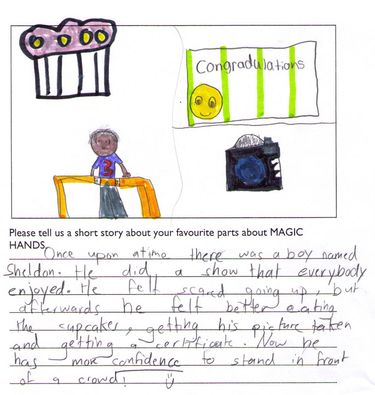 Congradulations
Please tell us a short story about your favourite parts about MAGIC
HANDS
Once upon a time there was a boy named
Sheldon. He did a show that everybody
enjoyed. He felt scared going up, but
afterwards he felt better eating
the cupcakes, getting his picture taken
and getting a certificate. Now he
has more confidence to stand in front
of a crowd!